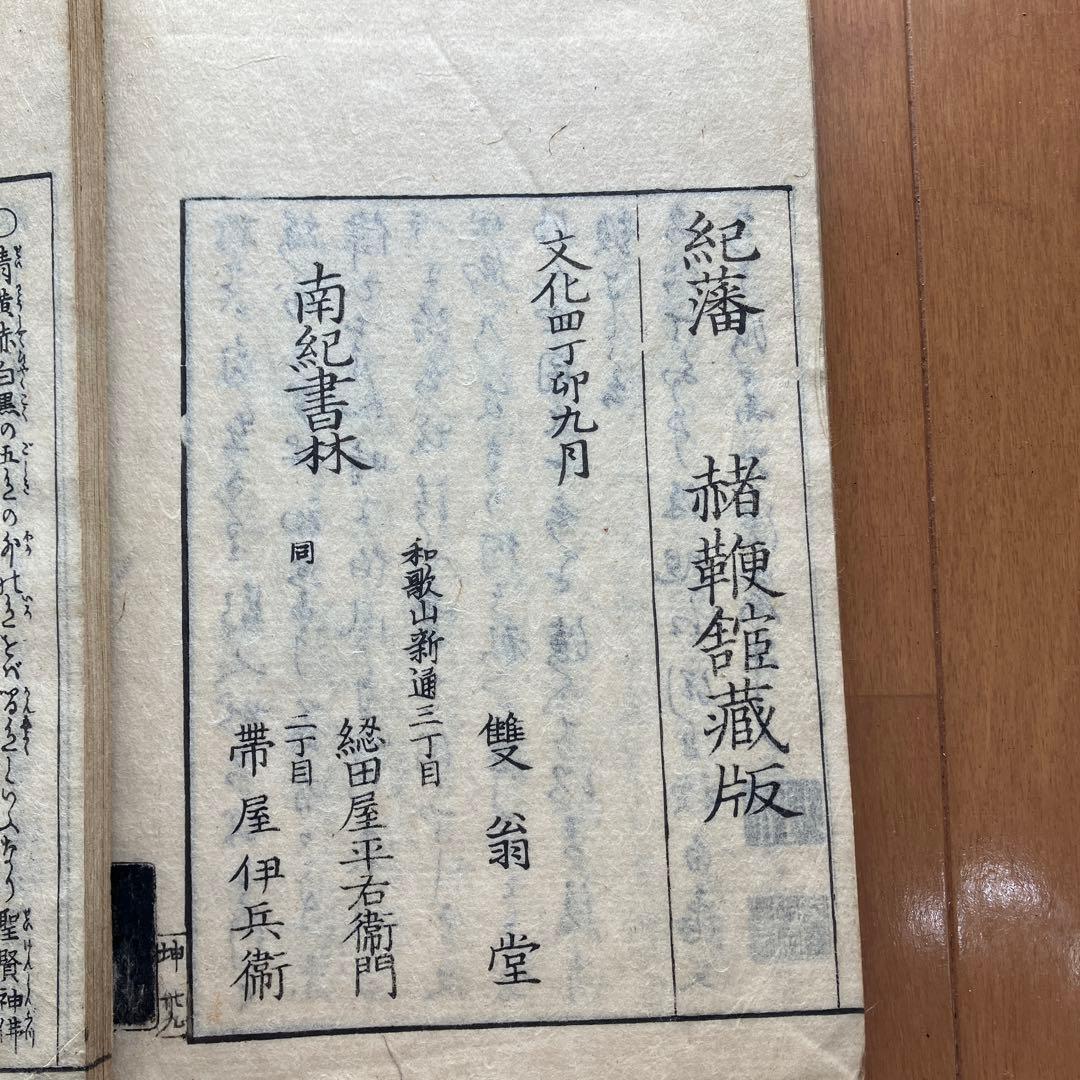 紀藩 赭鞭舘藏版
文化四丁卯九月
雙翁堂
和歌山新通三丁目
南紀書林 緫田屋平右衞門
同 二丁目
帶屋伊兵衞
坤 廿九
○青黄赤白黒の五色の外の色を
聖賢神佛